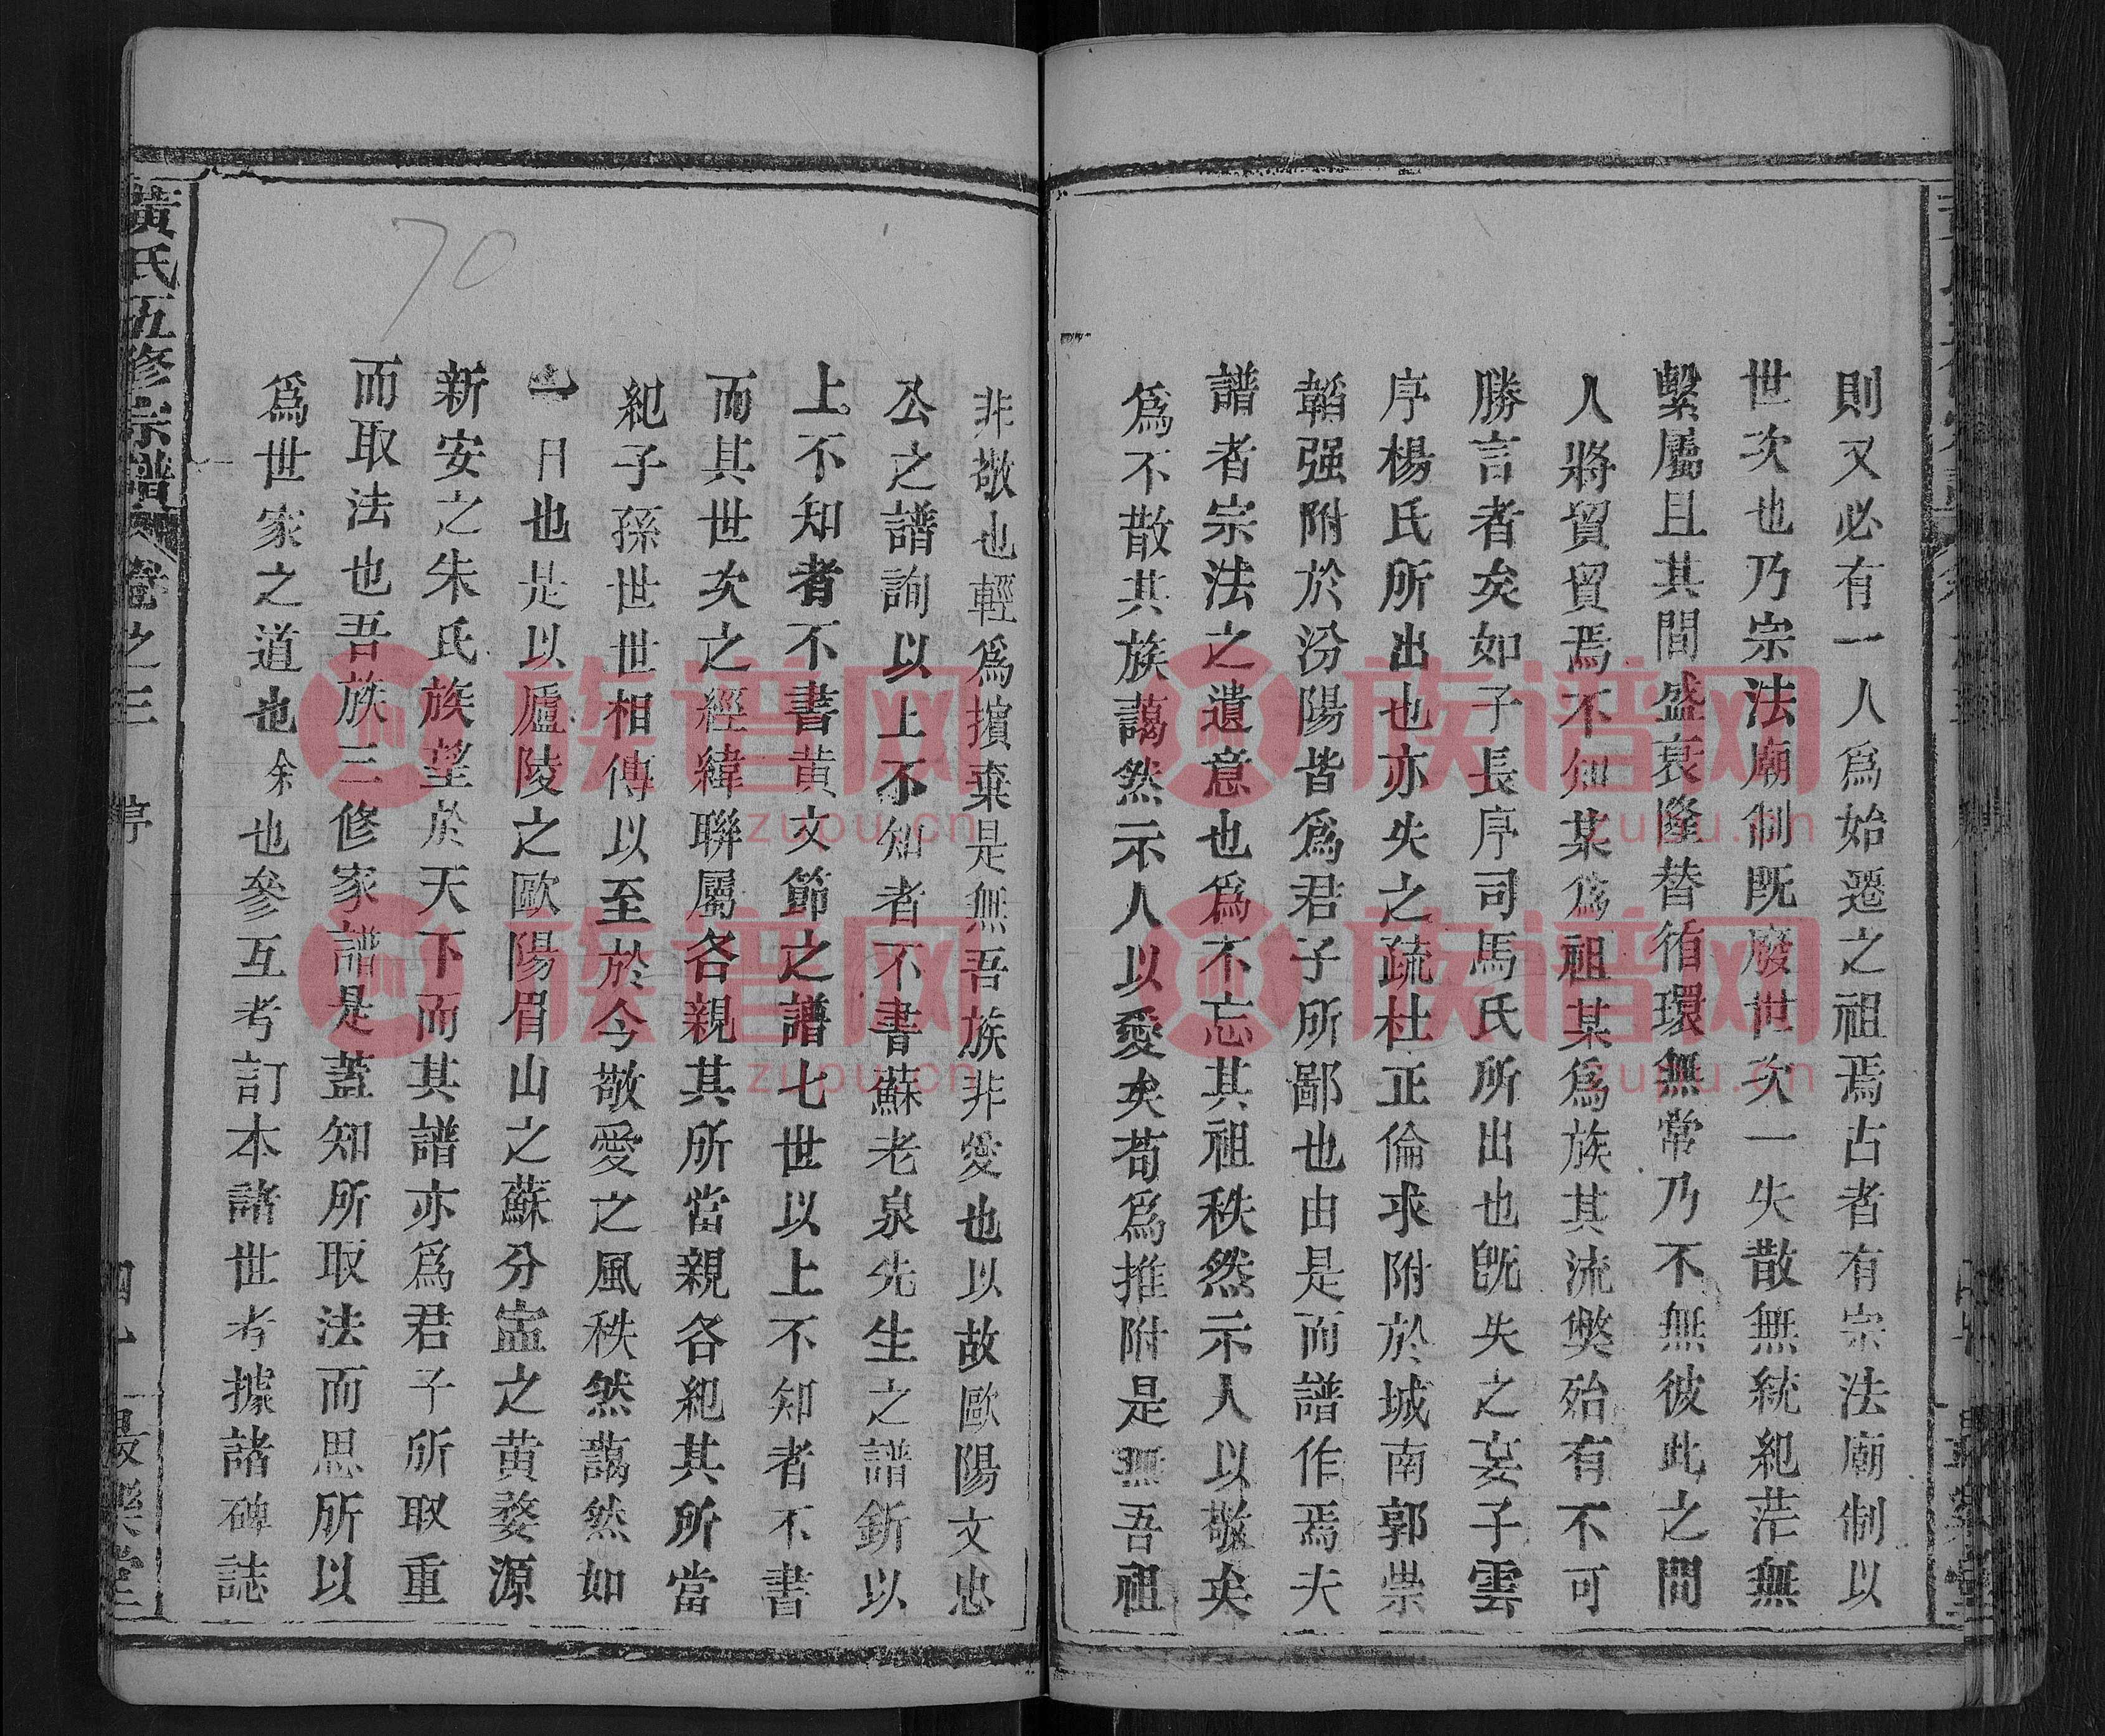 則又必有一人爲始遷之祖焉古者有宗法廟制以
世次也乃宗法廟制既廢世次一失散無統紀茫無
繫屬且其間盛衰隆替循環無常乃不無彼此之間
人將貿貿焉不知某爲祖某爲族其流獘殆有不可
勝言者矣如子長序司馬氏所出也既失之妄子雲
序楊氏所出也亦失之疏杜正倫求附於城南郭崇
韜强附於汾陽皆爲君子所鄙也由是而譜作焉夫
譜者宗法之遺意也爲不忘其祖秩然示人以敬矣
爲不散其族藹然示人以愛矣苟爲推附是無吾祖
非敬也輕爲擯棄是無吾族非愛也以故歐陽文忠
公之譜詢以上不知者不書蘇老泉先生之譜釿以
上不知者不書黃文節之譜七世以上不知者不書
而其世次之經緯聯屬各親其所當親各紀其所當
紀子孫世世相傳以至於今敬愛之風秩然藹然如
一日也是以廬陵之歐陽眉山之蘇分寍之黃婺源
新安之朱氏族望於天下而其譜亦爲君子所取重
而取法也吾族三修家譜是蓋知所取法而思所以
爲世家之道也余也參互考訂本諸世考據諸碑誌
黃氏五修宗譜 卷之三 序 最樂堂
70
族谱网 zupu.cn
族谱网 zupu.cn
族谱网 zupu.cn
族谱网 zupu.cn